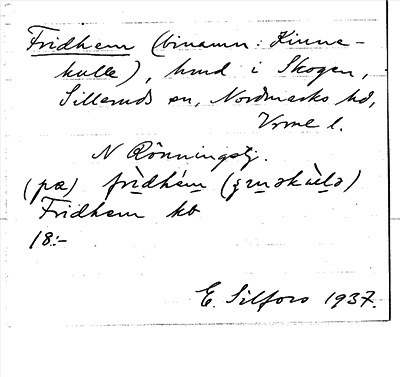 Fridhem (binamn: Kinne-
kulle), hmd i Skogen,
Silleruds sn, Nordmarks hd,
Vrml l.
N Rönningstj.
(pæ) frìdhém
Fridhem kb
18:-
E. Silfors 1937.